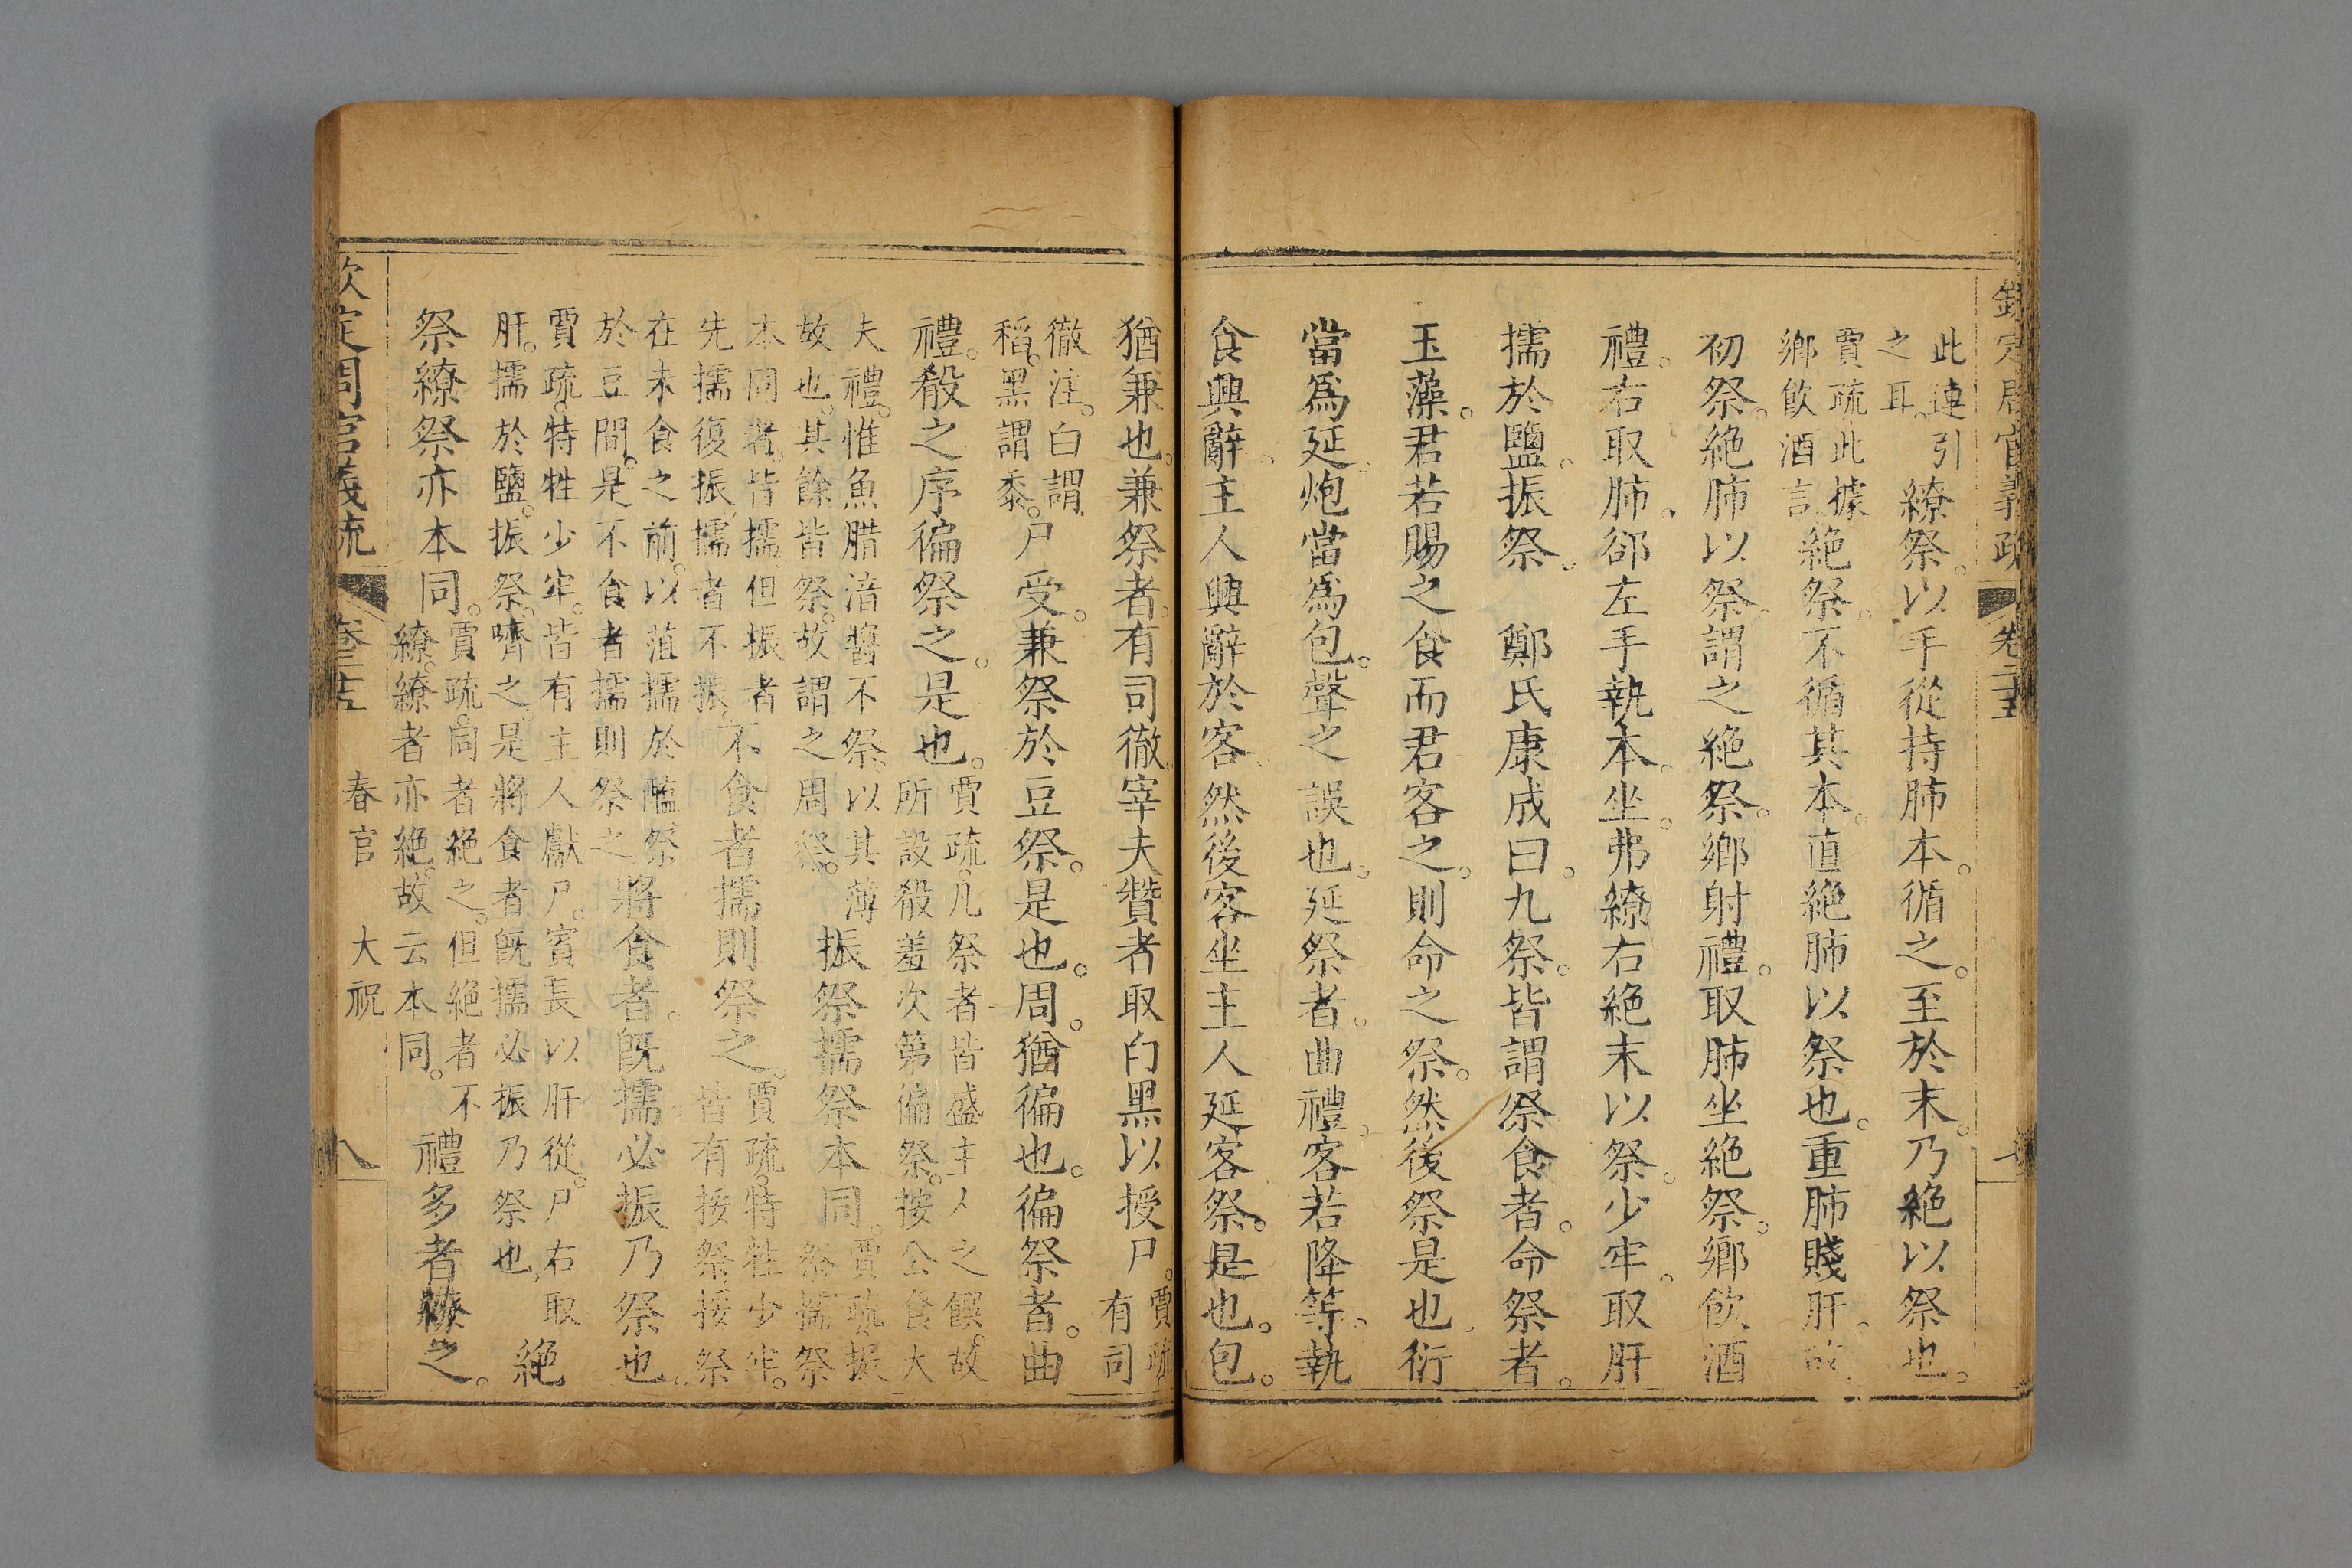 欽定周官義疏 卷二十五
此連引
之耳。
繚祭。以手從持肺本。循之。至於末。乃絶以祭也。
賈疏此據
鄉飲酒言
絶祭。不循其本。直絶肺以祭也。重肺賤肝。故
初祭。絶肺以祭。謂之絶祭。鄉射禮。取肺坐絶祭。鄉飲酒
禮。右取肺。郤左手執本。坐。弗繚右絶末以祭。少牢。取肝
擩於鹽。振祭。 鄭氏康成曰。九祭。皆謂祭食者。命祭者。
玉藻。君若賜之食而君客之。則命之祭。然後祭是也衍
當為延。炮當為包。聲之誤也。延祭者。曲禮。客若降等。執
食興辭。主人興辭於客。然後客坐主人延客祭。是也。包。
猶兼也。兼祭者。有司徹。宰夫贊者取白黑以授尸。
賈疏。
有司
徹注。白謂
稻。黑謂黍。
尸受。兼祭於豆祭。是也。周。猶徧也。徧祭者。曲
禮。殽之序徧祭之。是也。
賈疏。凡祭者皆盛主人之饌。故
所設殽羞次第徧祭。按公食大
夫禮。惟魚腊湆醬不祭。以其薄
故也。其餘皆祭。故謂之周祭。
振祭擩祭本同。
賈疏。振
祭擩祭
本同者。皆擩。但振者
先擩復振。擩者不振。
不食者擩則祭之。
賈疏。特牲少牢。
皆有挼祭。挼祭
在未食之前。以菹擩於醢。祭
於豆間。是不食者擩則祭之
將食者。旣擩必振乃祭也。
賈疏。特牲少牢。皆有主人獻尸。賓長以肝從。尸右取
肝。擩於鹽。振祭。嚌之。是將食者旣擩必振乃祭也。
絶
祭繚祭亦本同。
賈疏。同者絶之。但絶者不
繚。繚者亦絶。故云本同。
禮多者繚之。
欽定周官義疏 卷二十五 春官 大祝 八